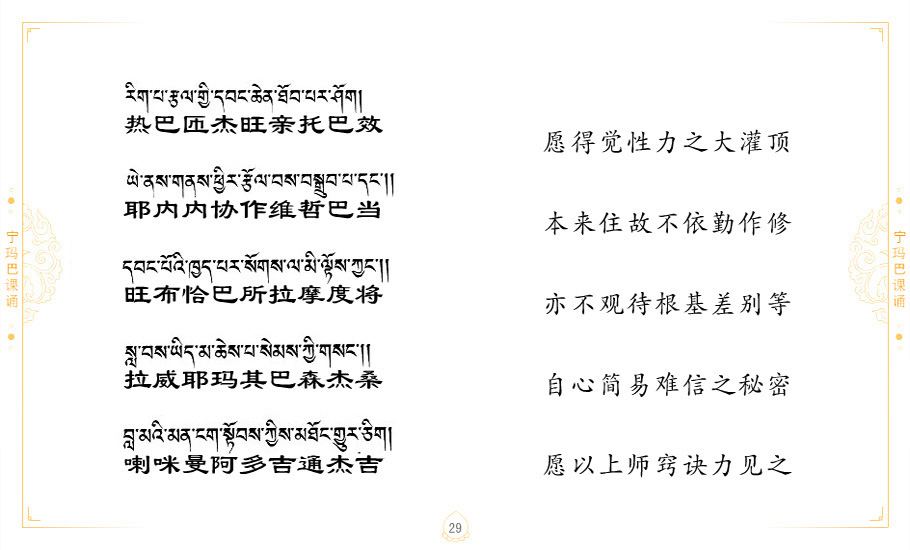 རིག་པ་རྩལ་གྱི་དབང་ཆེན་ཐོབ་པར་ཤོག།
热巴匝杰旺亲托巴效
愿得觉性力之大灌顶
ཡེ་ནས་གནས་ཕྱིར་རྩོལ་བས་བསྒྲུབ་པ་དང་།།
耶内内协作维哲巴当
本来住故不依勤作修
དབང་པོའི་ཁྱད་པར་སོགས་ལ་མི་ལྟོས་ཀྱང་།།
旺布恰巴所拉摩度将
亦不观待根基差别等
སླ་བས་ཡིད་མ་ཆེས་པ་སེམས་ཀྱི་གསང་།།
拉威耶玛其巴森杰桑
自心简易难信之秘密
བླ་མའི་མན་ངག་སྟོབས་ཀྱིས་མཐོང་གྱུར་ཅིག།
喇咪曼阿多吉通杰吉
愿以上师窍诀力见之
宁玛巴课诵
宁玛巴课诵
29